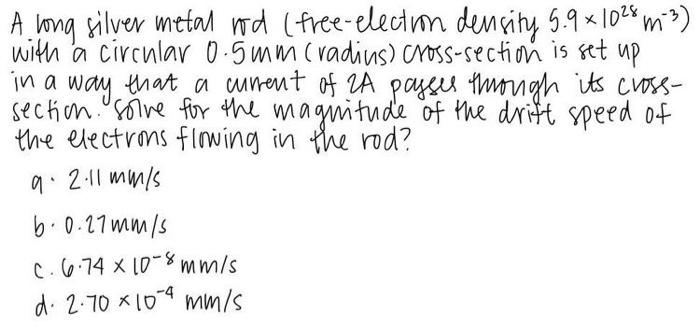 A long silver metal rod (free-electron density 5.9 × 10²⁸ m⁻³)
with a circular 0.5mm (radius) cross-section is set up
in a way that a current of 2A passes through its cross-
section. Solve for the magnitude of the drift speed of
the electrons flowing in the rod?
a. 2.11 mm/s
b. 0.27 mm/s
c. 6.74 × 10⁻⁸ mm/s
d. 2.70 × 10⁻⁴ mm/s